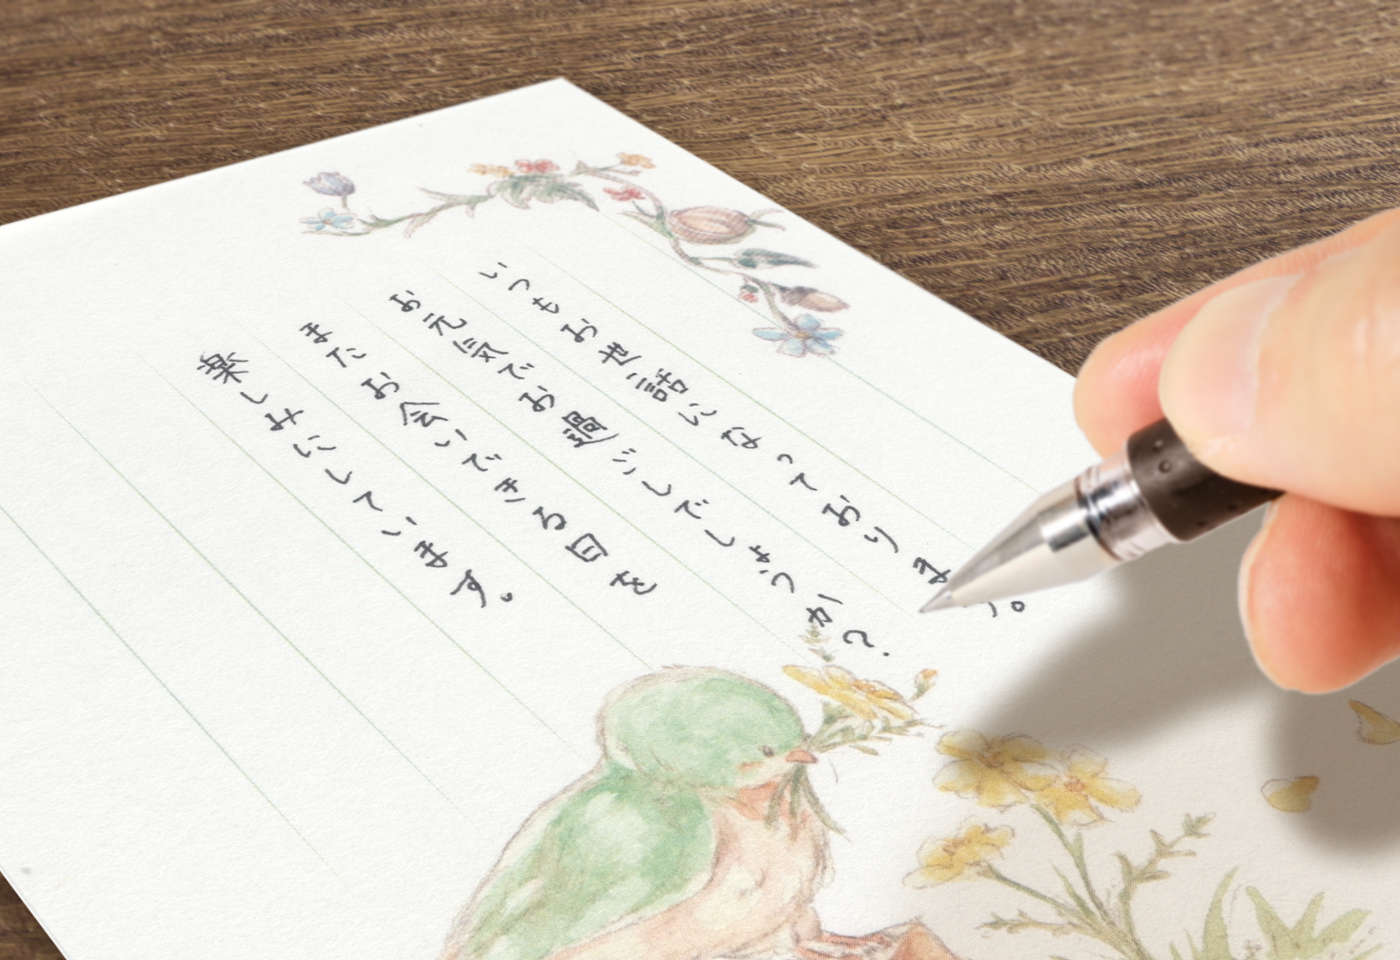 いつもお世話になっております。
お元気でお過ごしでしょうか?
またお会いできる日を
楽しみにしています。